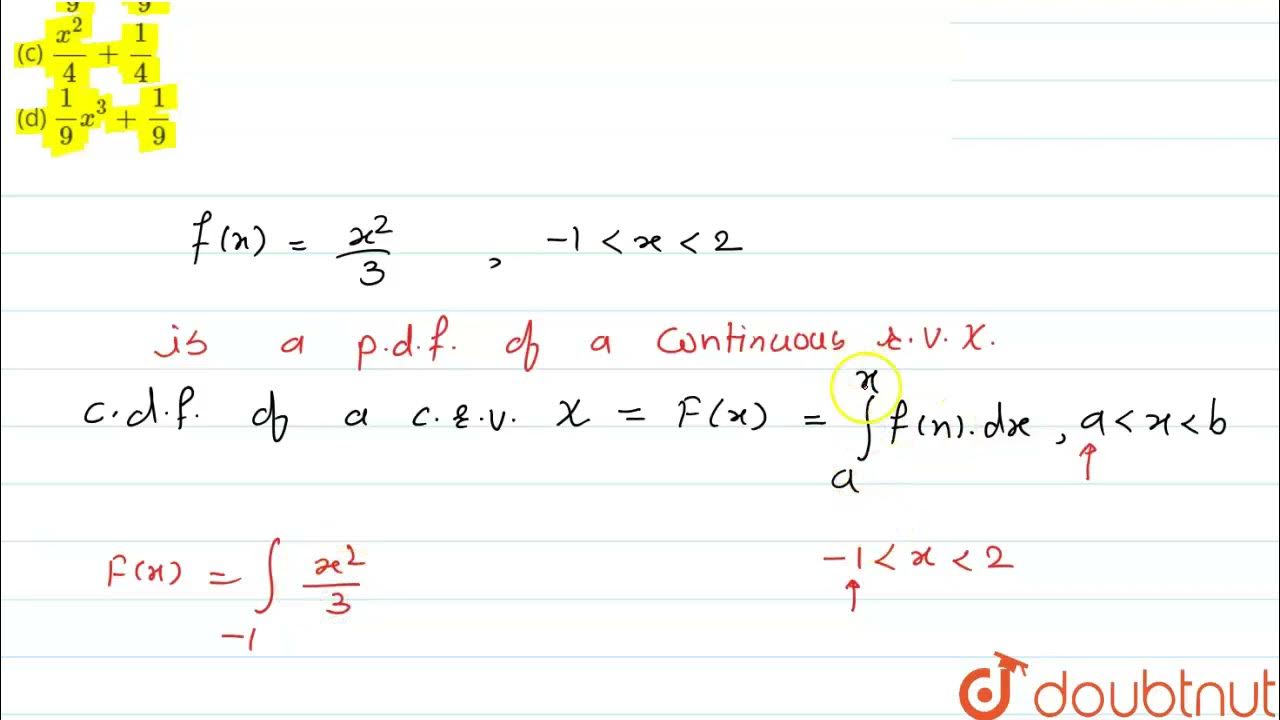 9 9
(c) x²/4 + 1/4
(d) 1/9 x³ + 1/9
f(x) = x²/3 , -1 < x < 2
is a p.d.f. of a continuous r.v. X.
c.d.f. of a c.r.v. X = F(x) = ∫ₐˣ f(x).dx , a < x < b
F(x) = ∫₋₁ x²/3 -1 < x < 2
doubtnut